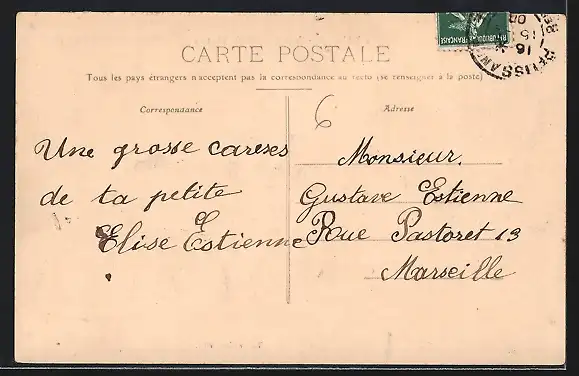 CARTE POSTALE
Tous les pays étrangers n'acceptent pas la correspondance au recto (se renseigner à la poste)
Correspondance
Adresse
6
Une grosse careses
de ta petite
Elise Estienne
Monsieur.
Gustave Estienne
Rue Pastoret 13
Marseille
REPUBLIQUE FRANÇAISE